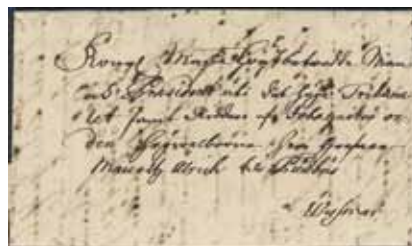 Kongl. Mayts Högtbetrodde Man
och President uti det höga Tribuna
let samt Riddare af
den Högvälborne Herr Grefwe
Mauritz Ulrich till Putbus
Wismar